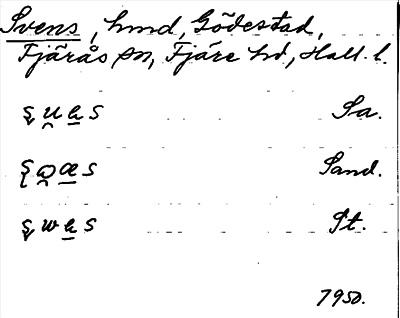 Svens, hmd, Gödestad,
Fjärås sn, Fjäre hd, Hall. l.
Sa.
Sand.
St.
7950.